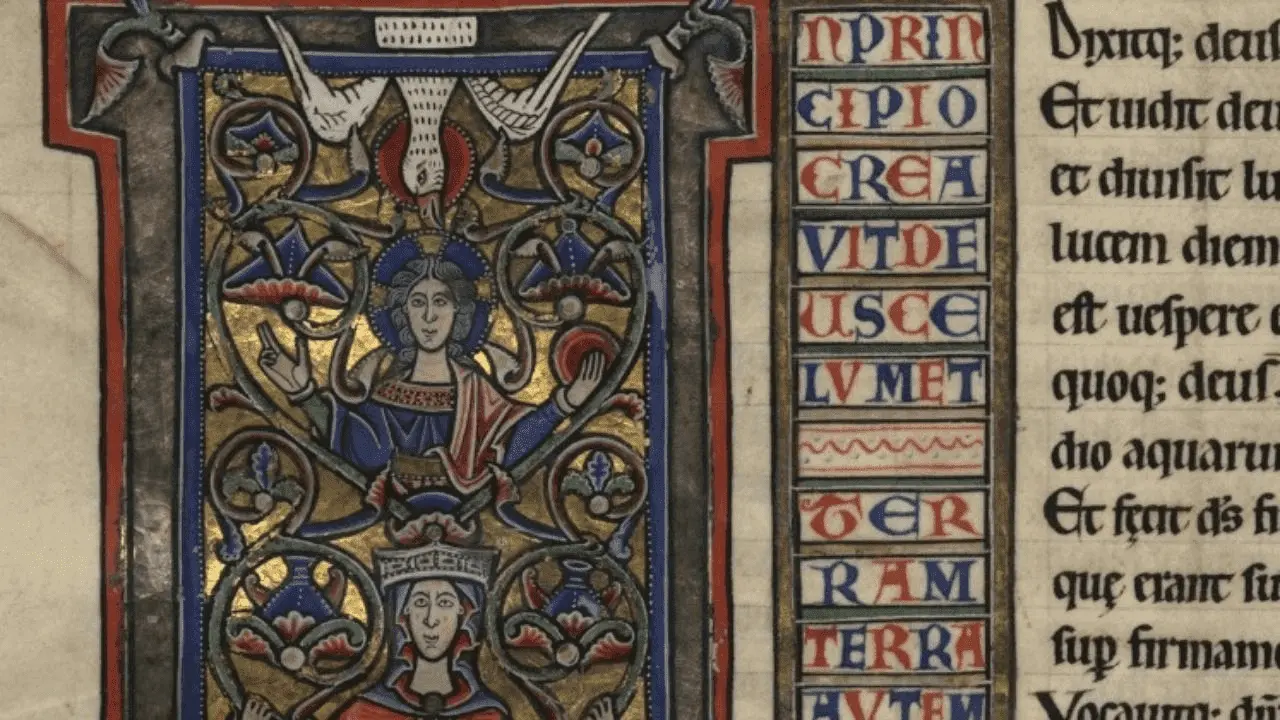 NPRIN
CIPIO
CREA
VITDE
USCE
LVMET
TER
RAM
TERRA
AVTEM
Dixitq; deuſ
Et uidit deu
et diuiſit lu
lucem diem
eſt ueſpere
quoq; deuſ
dio aquarum
Et fecit dſ fi
quę erant ſu
ſup firmame
Vocauitq;